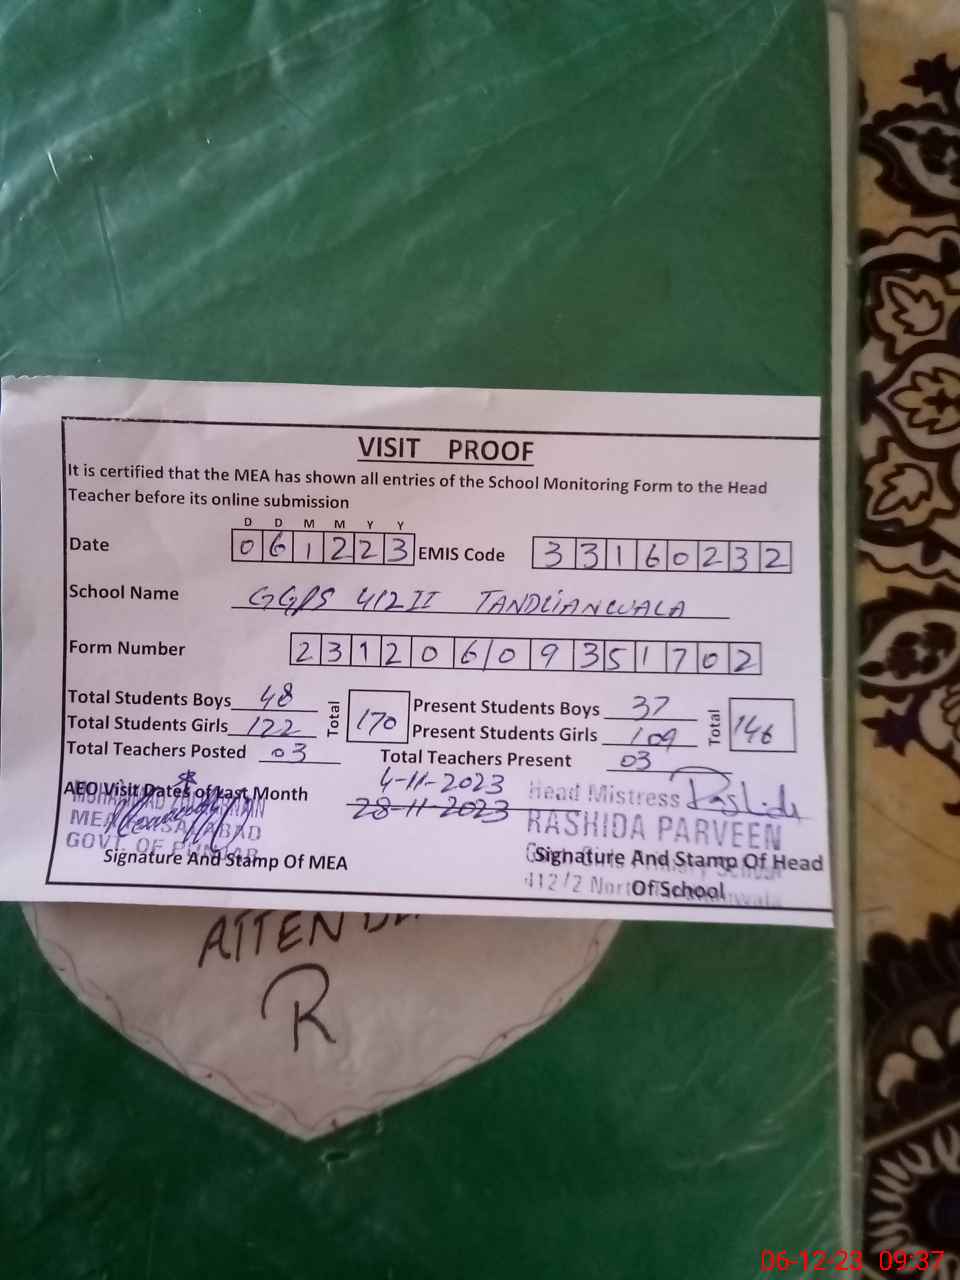 VISIT PROOF
It is certified that the MEA has shown all entries of the School Monitoring Form to the Head
Teacher before its online submission
D D M M Y Y
Date 0 6 1 2 2 3 EMIS Code 3 3 1 6 0 2 3 2
School Name GGPS 412 II TANDLIANWALA
Form Number 2 3 1 2 0 6 0 9 3 5 1 7 0 2
Total Students Boys 48 Total 170 Present Students Boys 37 Total 146
Total Students Girls 122 Present Students Girls 109
Total Teachers Posted 03 Total Teachers Present 03
AEO Visit Dates of Last Month 4-11-2023
28-11-2023
Head Mistress Rashida
RASHIDA PARVEEN
MEA
GOVT. OF PUNJAB
Signature And Stamp Of MEA
Signature And Stamp Of Head
Of School
412/2
ATTEN
R
06-12-23 09:37